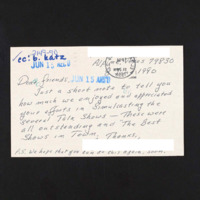 cc: b. katz
JUN 15 REC'D
JUN 15 REC'D
79830
1990
Dear friends,
Just a short note to tell you
how much we enjoyed and appreciated
your efforts in Simulcasting the
several Tele Shows — There were
all outstanding and The Best
Shows on Team, Thanks.
P.S. We hope that you can do this again, soon.